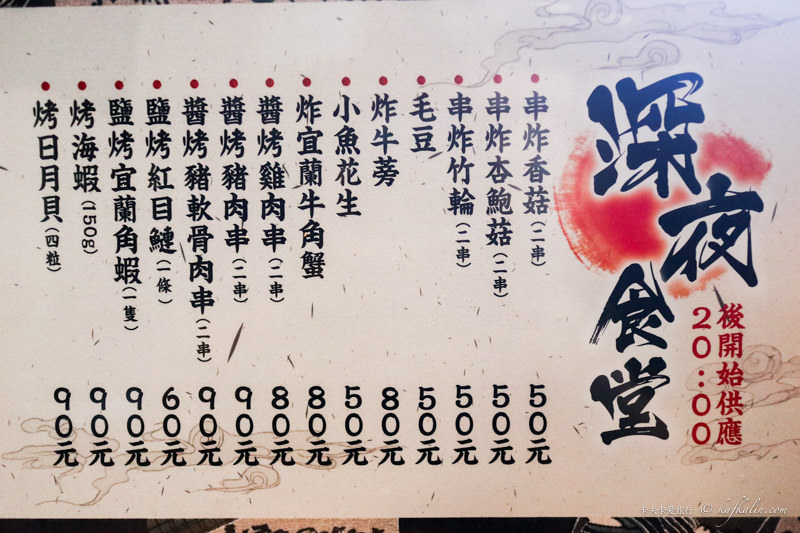 深夜食堂
20:00
後開始供應
串炸香菇(二串) 50元
串炸杏鮑菇(二串) 50元
串炸竹輪(二串) 50元
毛豆 50元
炸牛蒡 80元
小魚花生 50元
炸宜蘭牛角蟹 80元
醬烤雞肉串(二串) 80元
醬烤豬肉串(二串) 90元
醬烤豬軟骨肉串(二串) 90元
鹽烤紅目鰱(一條) 60元
鹽烤宜蘭角蝦(一隻) 90元
烤海蝦(150g) 90元
烤日月貝(四粒) 90元
卡夫卡愛旅行 © kafkalin.com